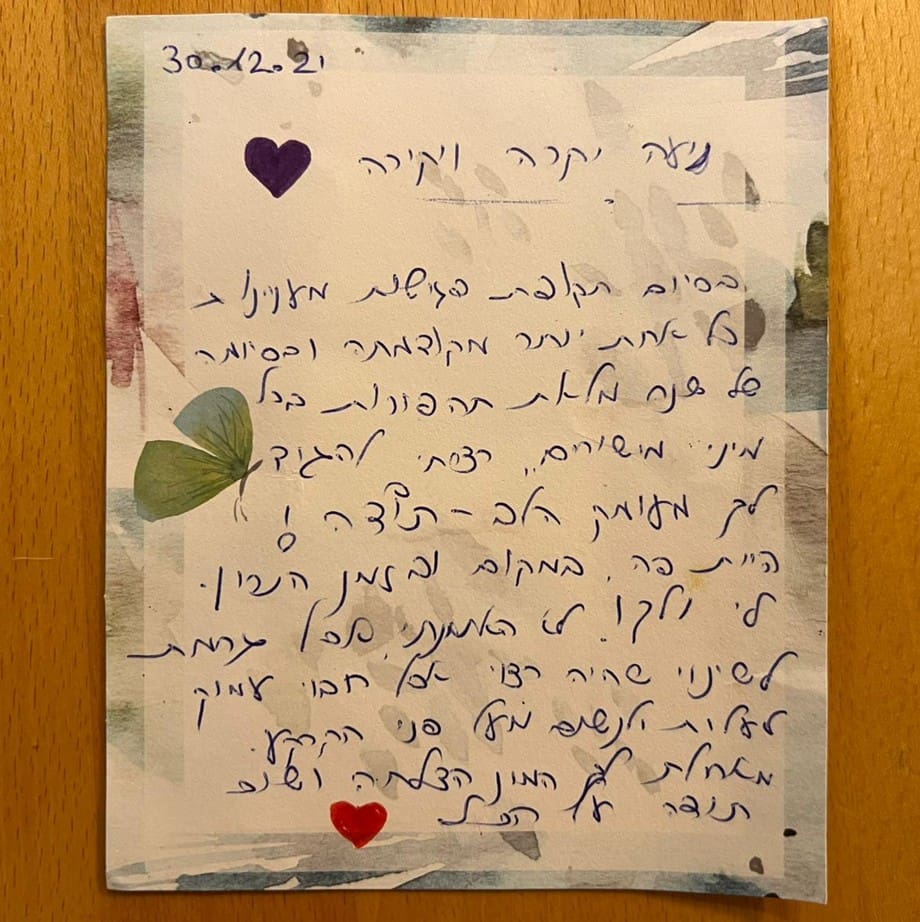 30.12.21
נועה יקרה ויקירה
בסיום תקופת פגישות מעניינות
כל אחת יותר מקודמתה ובסיומה
של שנה מלאת תהפורות בכל
מיני מישורים, רציתי להגיד
לך מעומק הלב - תודה !
היית פה, במקום ובזמן הנכון.
לי ולקו. לא האמנתי אבל גרמת
לשינוי שהיה רצוי אבל חבוי עמוק
לעלות ולנשום מעל פני הקרקע.
מאחלת לך המון הצלחה ושוב
תודה על הכל